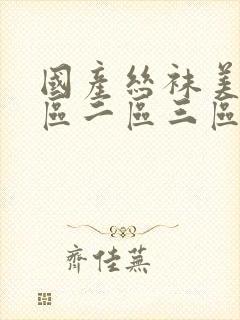 國產絲袜美
區二區三區
齊佳蕪